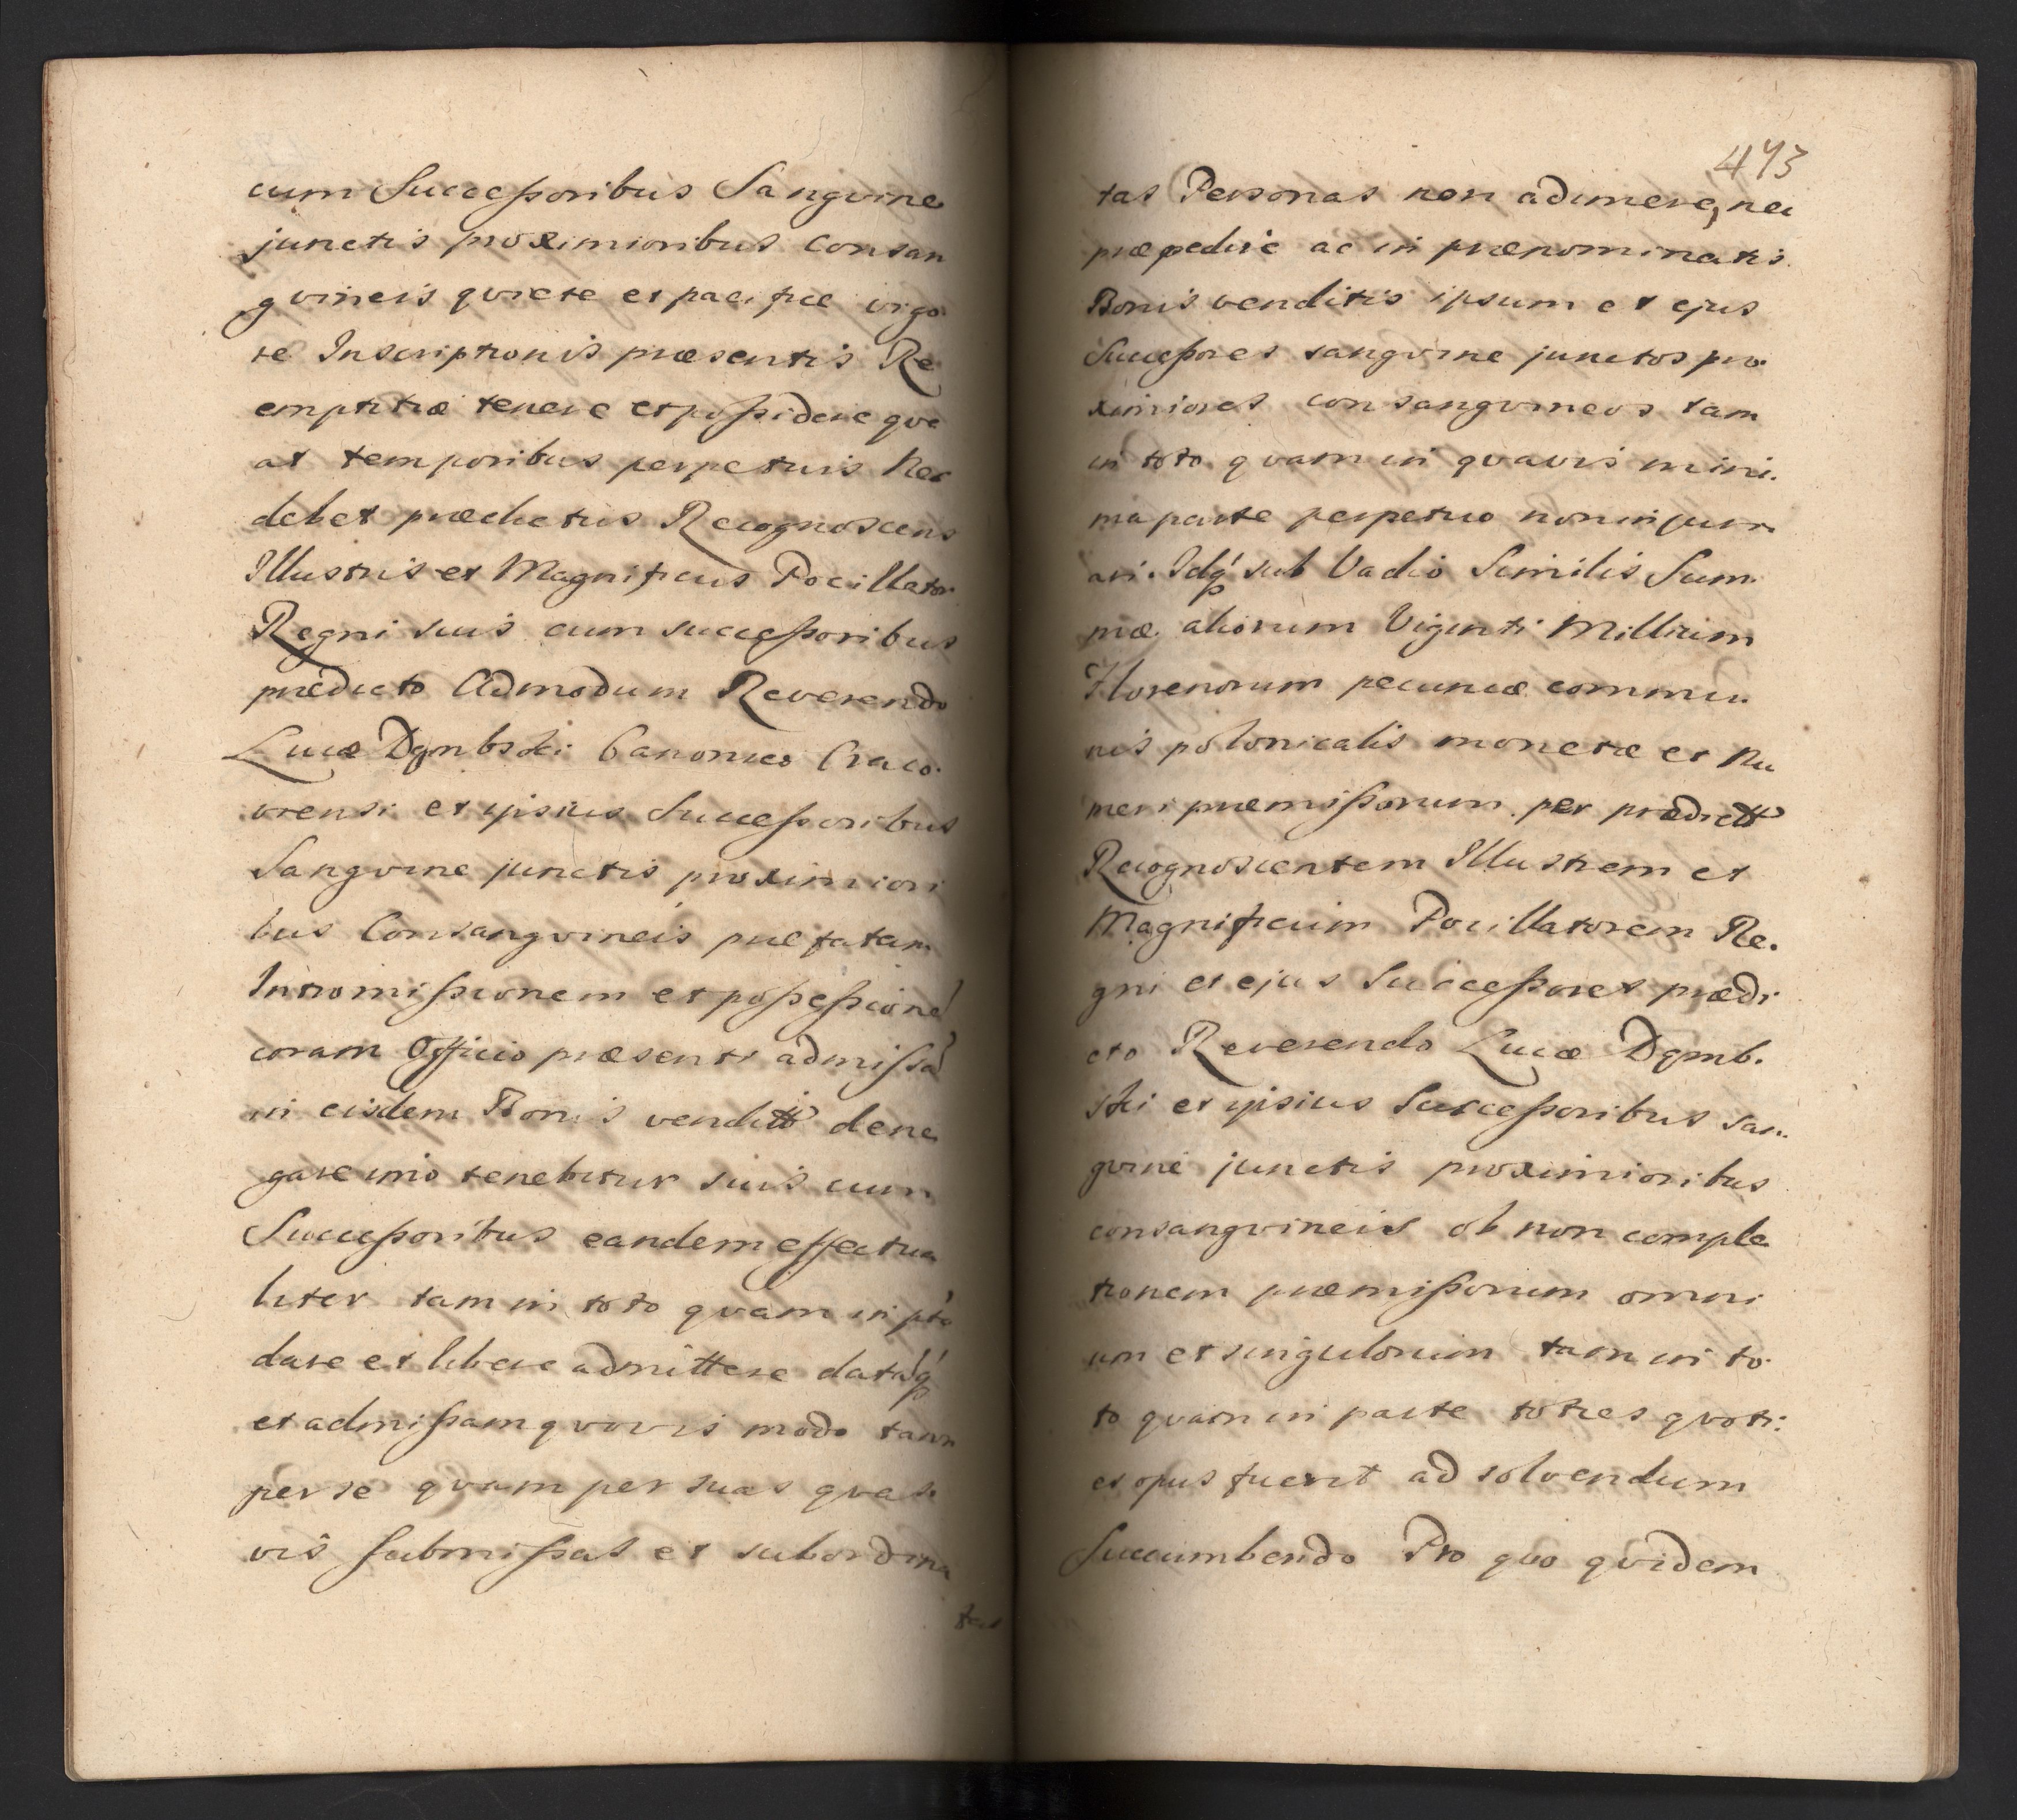 cum Successoribus Sangvine
junctis proximioribus Consan
gvineis qviete et pacifice vigo
re Inscriptionis præsentis Re
emptitiæ tenere et possidere qve
at temporibus perpetuis Nec
debet prædictus Recognoscens
Illustris et Magnificus Pocillator
Regni suis cum successoribus
prædicto Admodum Reverendo
Lucæ Dąmbski Canonico Craco.
viensi et ipsius Successoribus
Sangvine junctis proximiori
bus Consangvineis præfatam
Intromissionem et possessione
coram Officio præsenti admissa
in eisdem Bonis venditt dene
gare imo tenebitur suis cum
Successoribus eandem effectua
liter tam in toto qvam in pte
dare et libere admittere datāq
et admissam qvovis modo tam
per se qvam per suas qvas
vis submissas et subordina
tas
473
tas Personas non adimere, nec
præpedire ac in prænominatis
Bonis venditis ipsum et ejus
Successores sangvine junctos pro.
ximiores consangvineos tam
in toto qvam in qvavis mini.
ma parte perpetuo non injuri
ari. Idq sub Vadio Similis Sum.
mæ aliorum Viginti Millium
Florenorum pecuniæ commu.
nis polonicalis monetæ et Nu
meri præmissorum per prædictt
Recognoscentem Illustrem et
Magnificum Pocillatorem Re.
gni et ejus Successores prædi
cto Reverendo Lucæ Dąmb.
ski et ipsius Successoribus san.
gvine junctis proximioribus
consangvineis ob non comple
tionem præmissorum omni
um et singulorum tam in to.
to qvam in parte toties qvoti:
es opus fuerit ad solvendum
Succumbendo Pro qvo qvidem